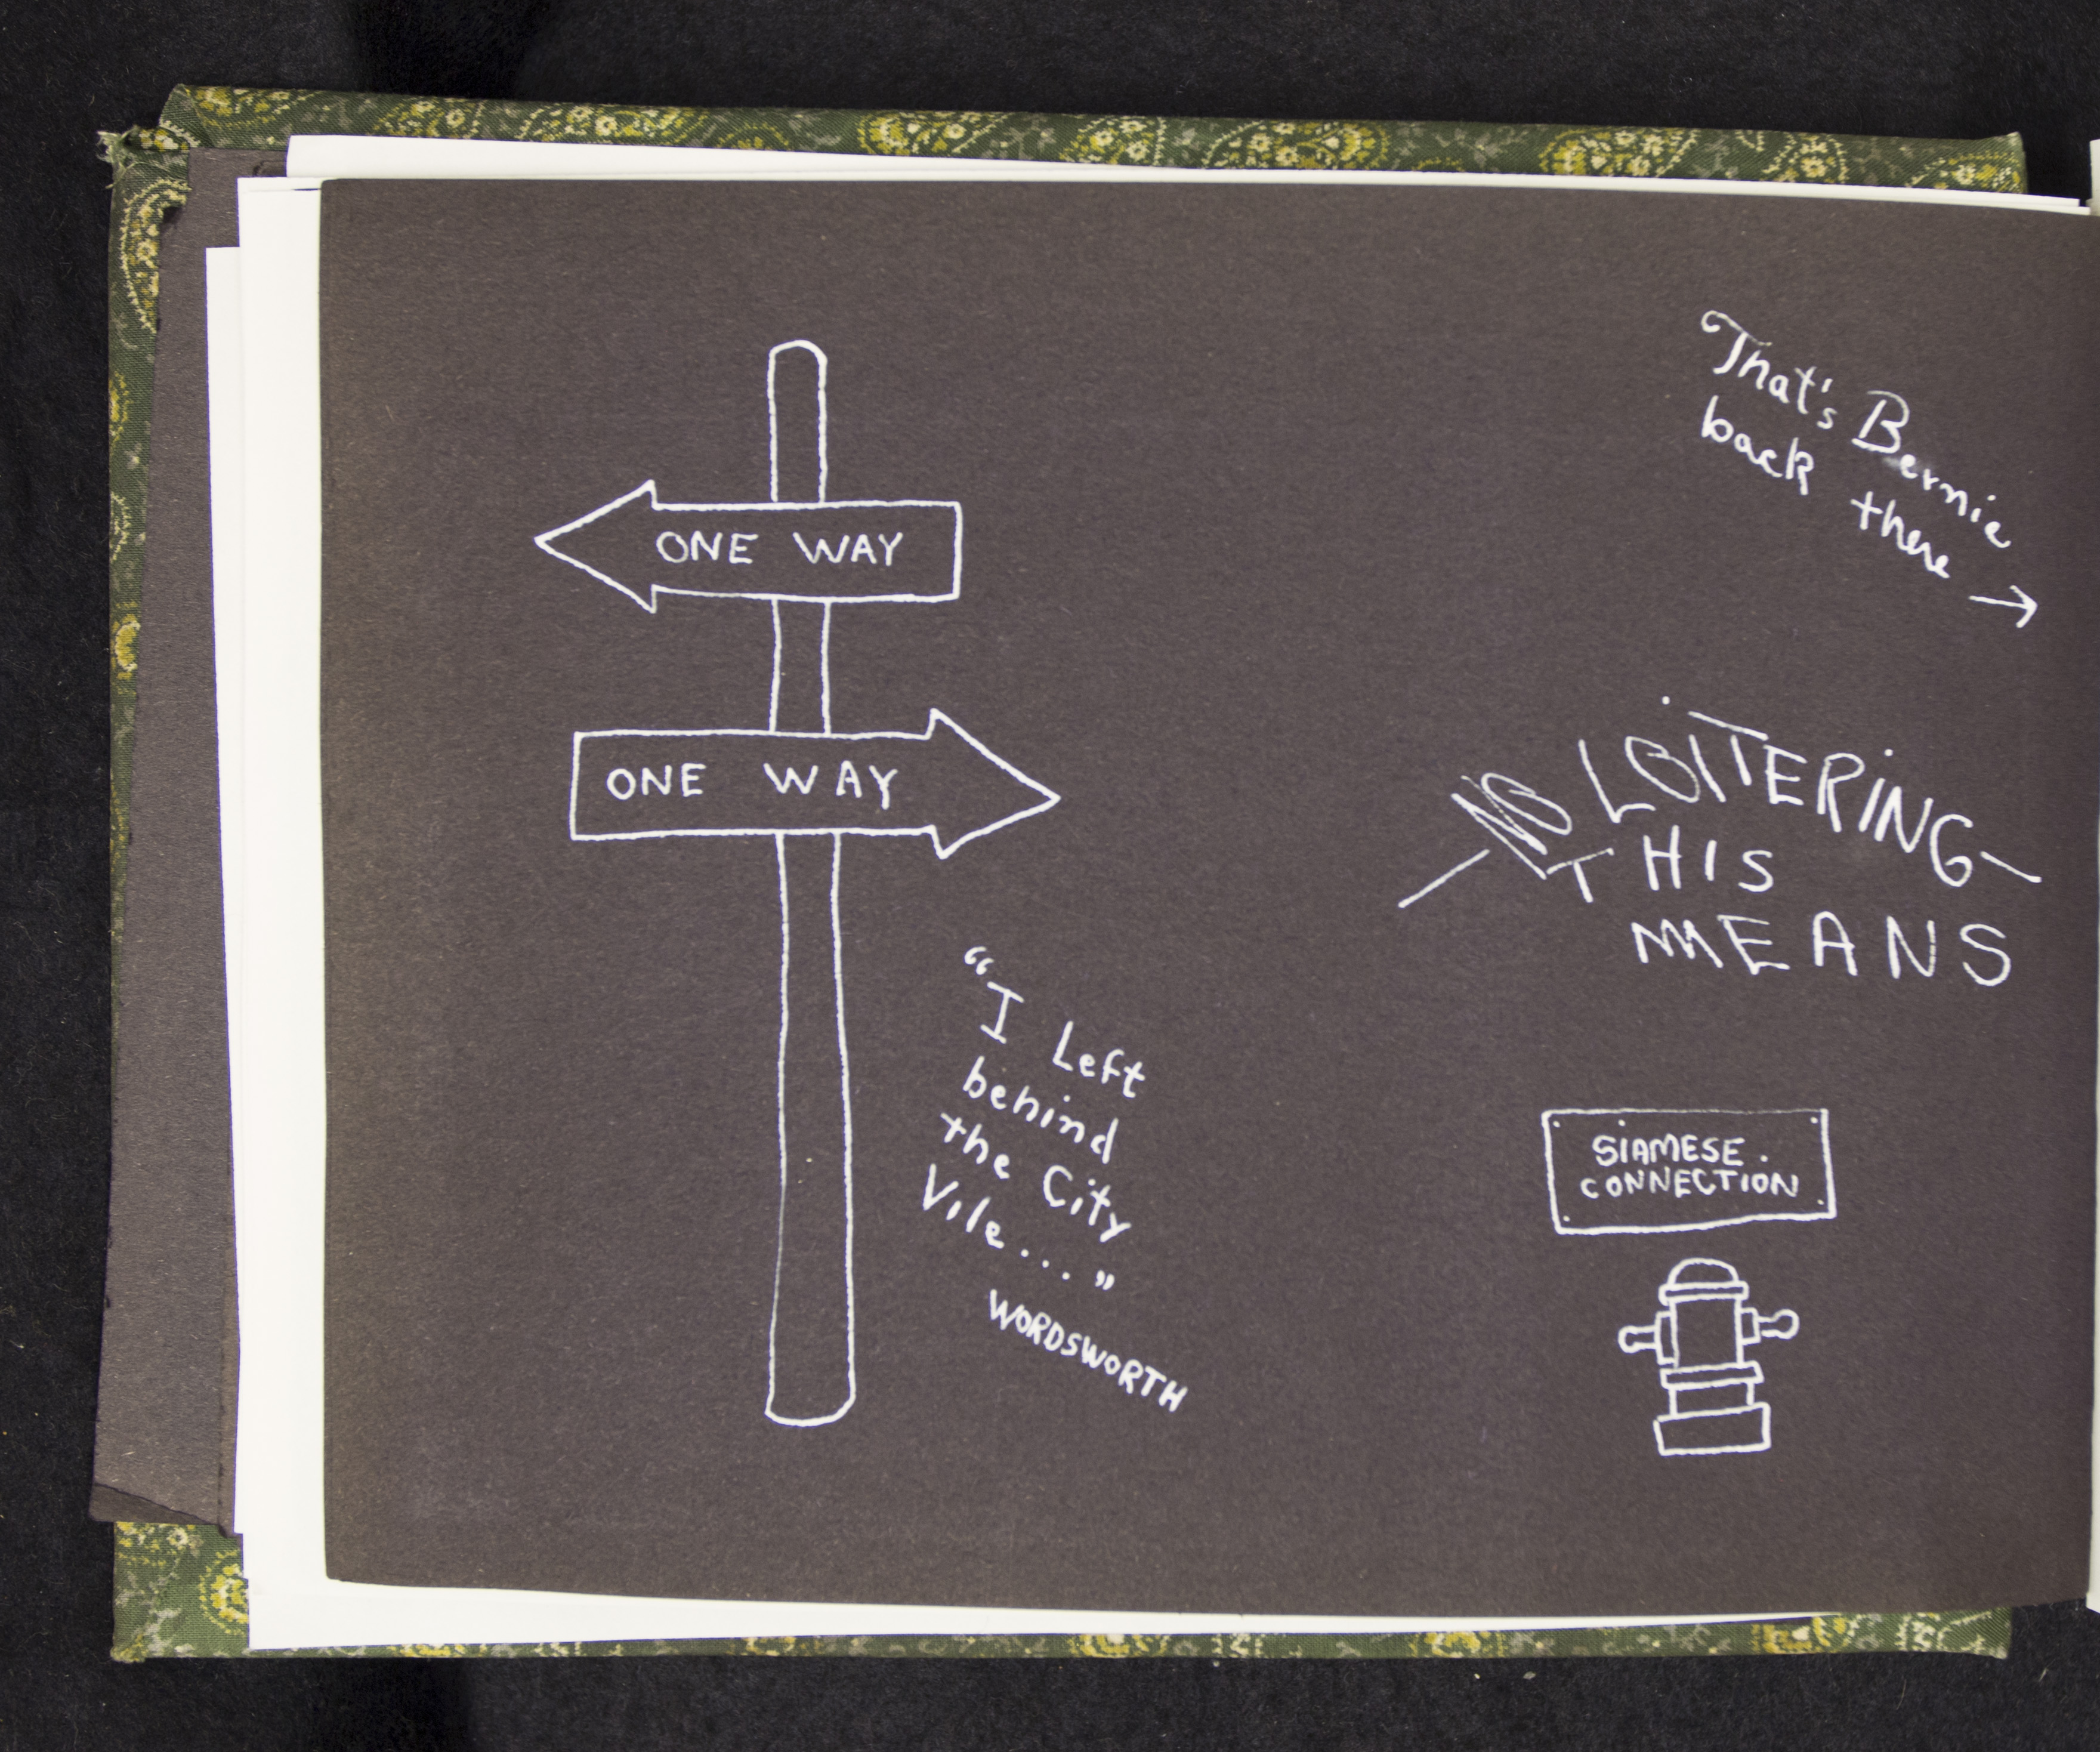 ONE WAY
ONE WAY
"I Left
behind
the City
Vile..."
WORDSWORTH
That's Bernie
back there →
NO LOITERING—
THIS
MEANS
SIAMESE.
CONNECTION